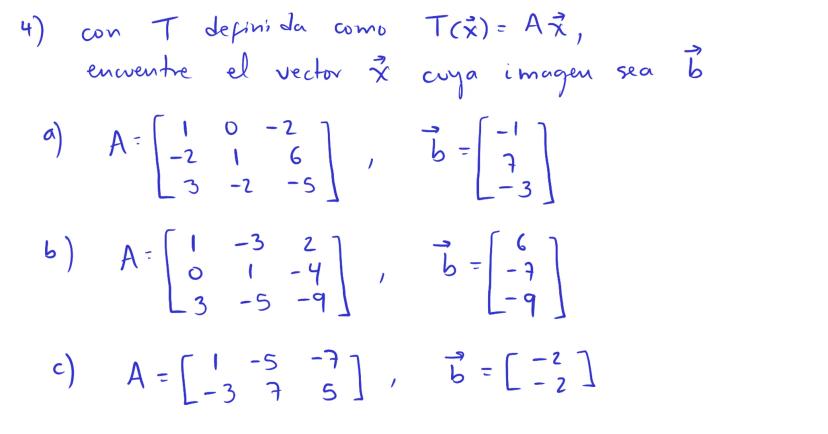 4) con T definida como T(x⃗) = A x⃗,
encuentre el vector x⃗ cuya imagen sea b⃗
a) A = [1 0 -2; -2 1 6; 3 -2 -5], b⃗ = [-1; 7; -3]
b) A = [1 -3 2; 0 1 -4; 3 -5 -9], b⃗ = [6; -7; -9]
c) A = [1 -5 -7; -3 7 5], b⃗ = [-2; -2]